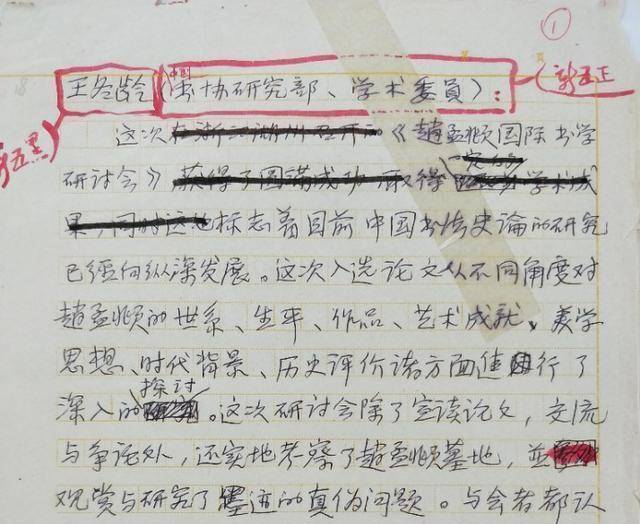 ①
王冬龄（中国书协研究部、学术委员）：
新五正
新五黑
这次在浙江湖州召开《趙孟頫国际书学
研讨会》获得了圆满成功 取得
标志着目前中国书法史论的研究
已经向纵深发展。这次入选论文从不同角度对
趙孟頫的世系、生平、作品、艺术成就、美学
思想、时代背景、历史评价诸方面进行了
深入的探讨。这次研讨会除了宣读论文，交流
与争论外，还实地考察了趙孟頫墓地，並
观赏与研究了墨迹的真伪问题。与会者都认